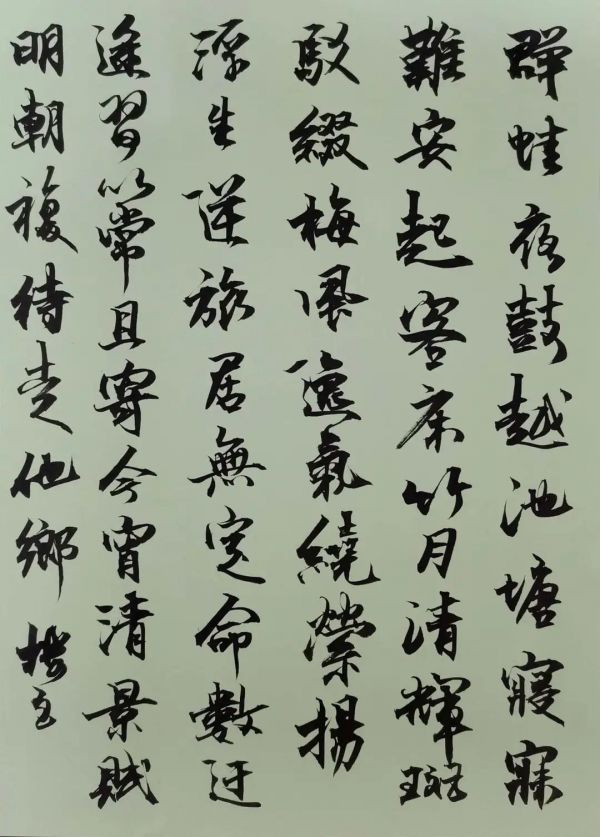 群蛙夜鼓越池塘寢寐
難安起客床竹月清輝斑
駁綴梅風逸氣繞縈揚
浮生逆旅居無定命數迂
途習以常且寄今宵清景賦
明朝複待走他鄉